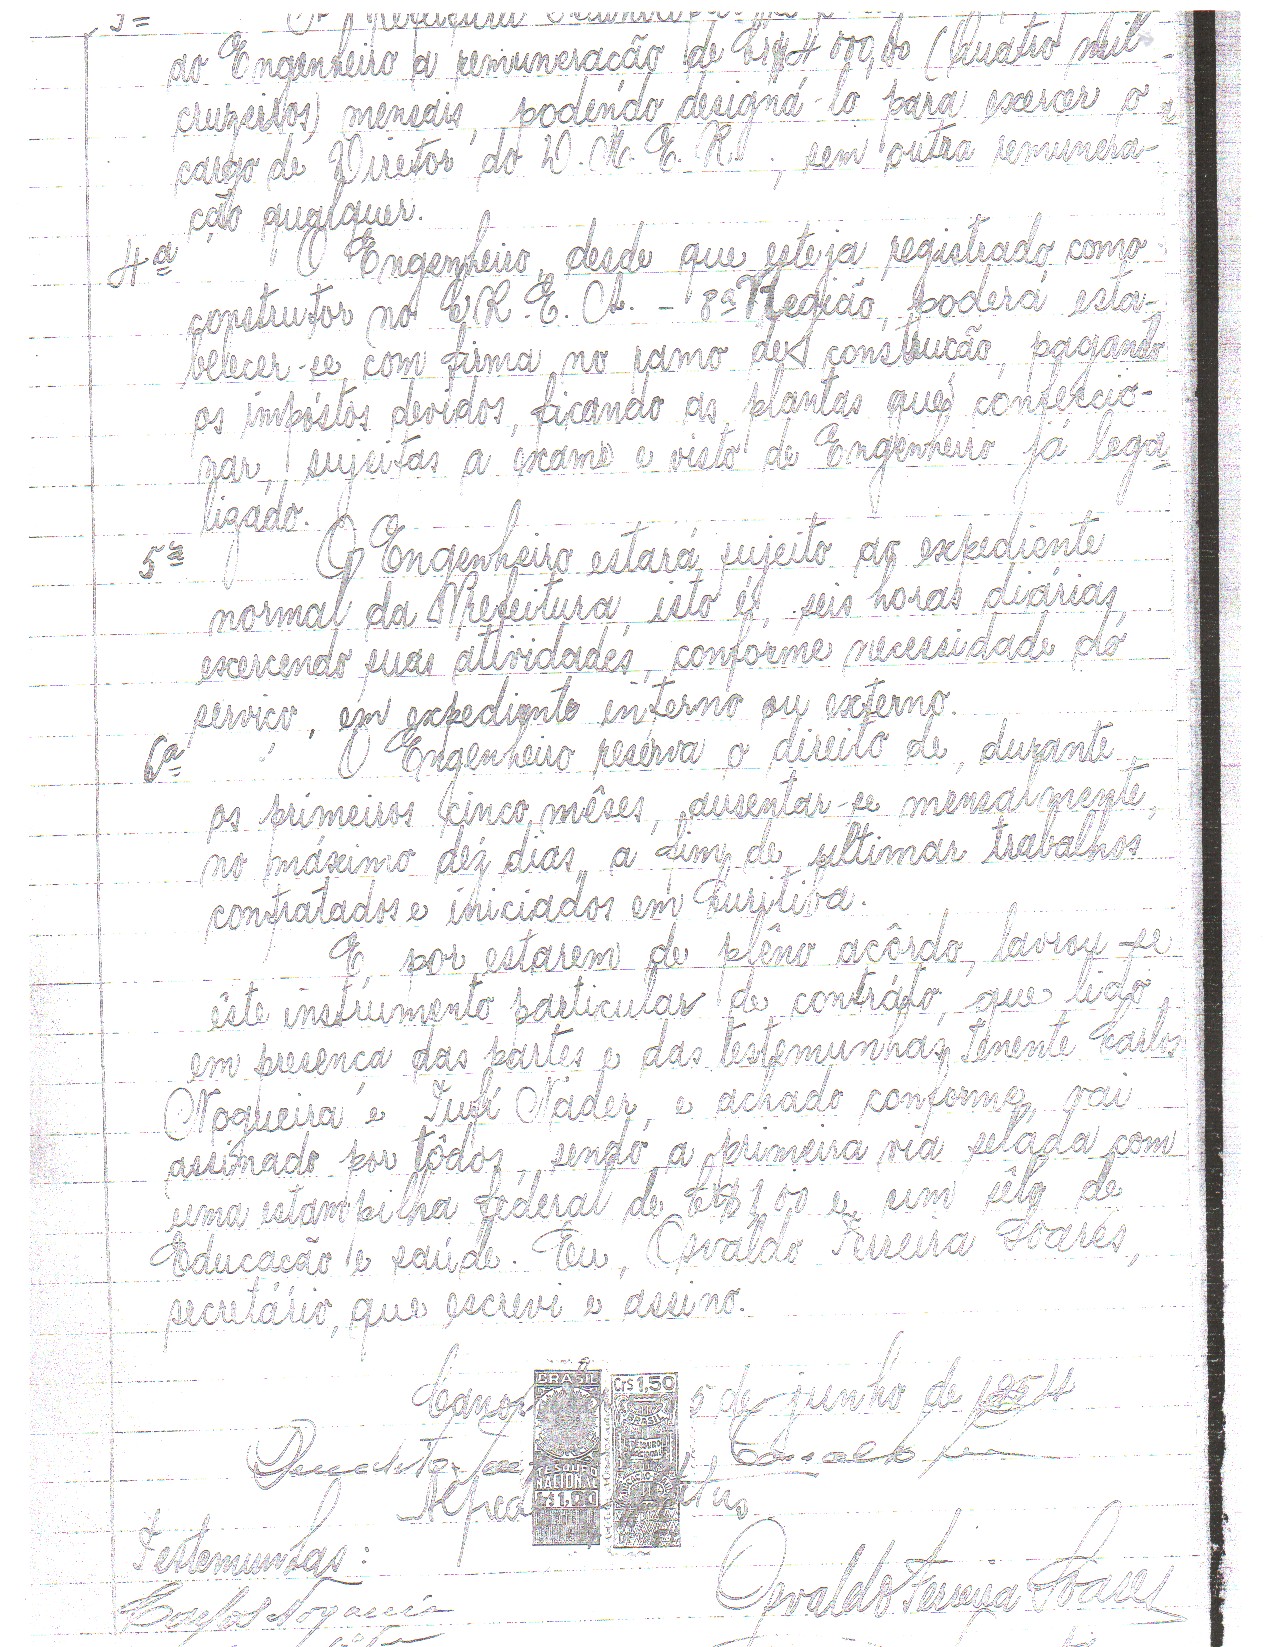 3ª A Prefeitura
ao Engenheiro a remuneração de Cr$ 4 000,00 (Quatro mil
cruzeiros) mensais, podendo designá-lo para exercer o
cargo de Diretor do D. M. E. R., sem outra remunera-
ção qualquer.
4ª O Engenheiro, desde que esteja registrado como
construtor no C. R. E. A. - 8ª Região, poderá esta-
belecer-se com firma no ramo de construção, pagando
os impóstos devidos, ficando as plantas que confeccio-
nar, sujeitas a exame e visto de Engenheiro já lega-
lizado.
5ª O Engenheiro estará sujeito ao expediente
normal da Prefeitura, isto é, seis horas diárias,
exercendo suas atividades, conforme necessidade do
serviço, em expediente interno ou externo.
6ª O Engenheiro reserva o direito de, durante
os primeiros cinco mêses, ausentar-se mensalmente,
no máximo dez dias, a fim de ultimar trabalhos
contratados e iniciados em Curitiba.
E, por estarem de plêno acôrdo, lavrou-se
êste instrumento particular de contráto, que lido
em presença das partes e das testemunhas, Tenente Carlos
Nogueira e Nader, e achado conforme, vai
assinado por tôdos, sendo a primeira via selada com
uma estampilha federal de Cr$ 1,00 e um sêlo de
Educação e saúde. Eu, Osvaldo Ferreira Soares,
secretário, que escrevi e assino.
5 de junho de 1954
BRASIL
TESOURO
NACIONAL
Cr$ 1,00
Cr$ 1,50
BRASIL
Testemunhas:
Carlos Nogueira
Osvaldo Ferreira Soares